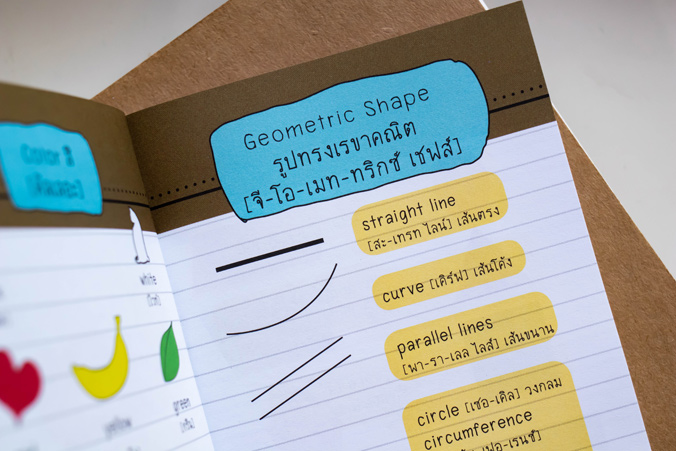 Color สี
white
yellow
green
Geometric Shape
รูปทรงเรขาคณิต
[จี-โอ-เมท-ทริกซ์ เชฟส์]
straight line
[สะ-เทรท ไลน์] เส้นตรง
curve [เคิร์ฟ] เส้นโค้ง
parallel lines
[พา-รา-เลล ไลส์] เส้นขนาน
circle [เซอ-เคิล] วงกลม
circumference